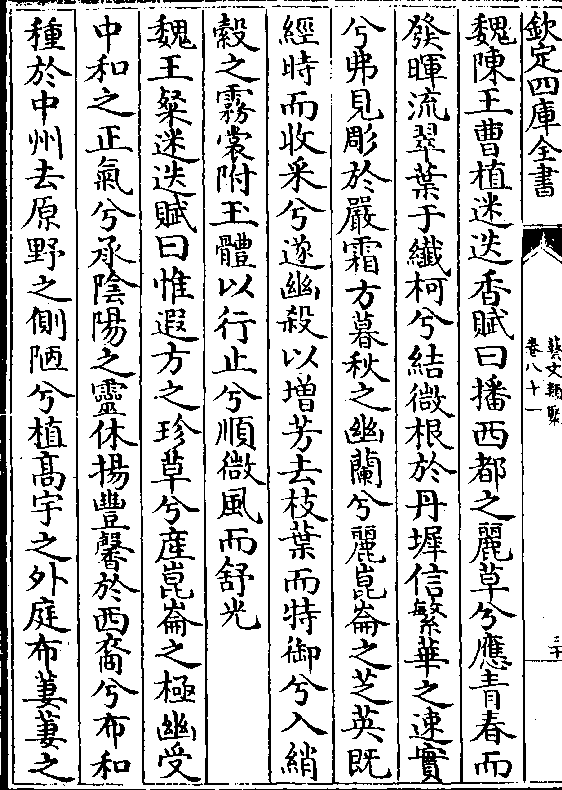 欽定四庫全書
藝文類聚
卷八十一
二十
魏陳王曹植迷迭香賦曰播西都之麗草兮應青春而
發暉流翠葉于纖柯兮結微根於丹墀信繁華之速實
兮弗見彫於嚴霜方暮秋之幽蘭兮麗崑崙之芝英既
經時而收采兮遂幽殺以增芳去枝葉而特御兮入綃
縠之霧裳附玉體以行止兮順微風而舒光
魏王粲迷迭賦曰惟遐方之珍草兮産崑崙之極幽受
中和之正氣兮承陰陽之靈休揚豐馨於西裔兮布和
種於中州去原野之側陋兮植髙宇之外庭布萋萋之